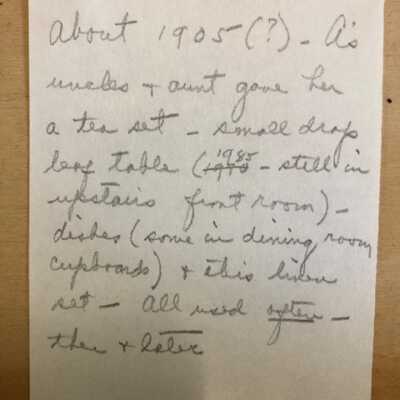 about 1905 (?) - A's
uncles + aunt gave her
a tea set - small drop
leaf table (1979 1985 - still in
upstairs front room) -
dishes (some in dining room
cupboards) + this linen
set - All used often -
then + later